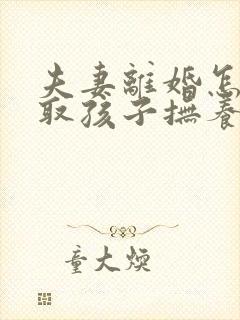 夫妻離婚怎
取孩子撫養
童大煥